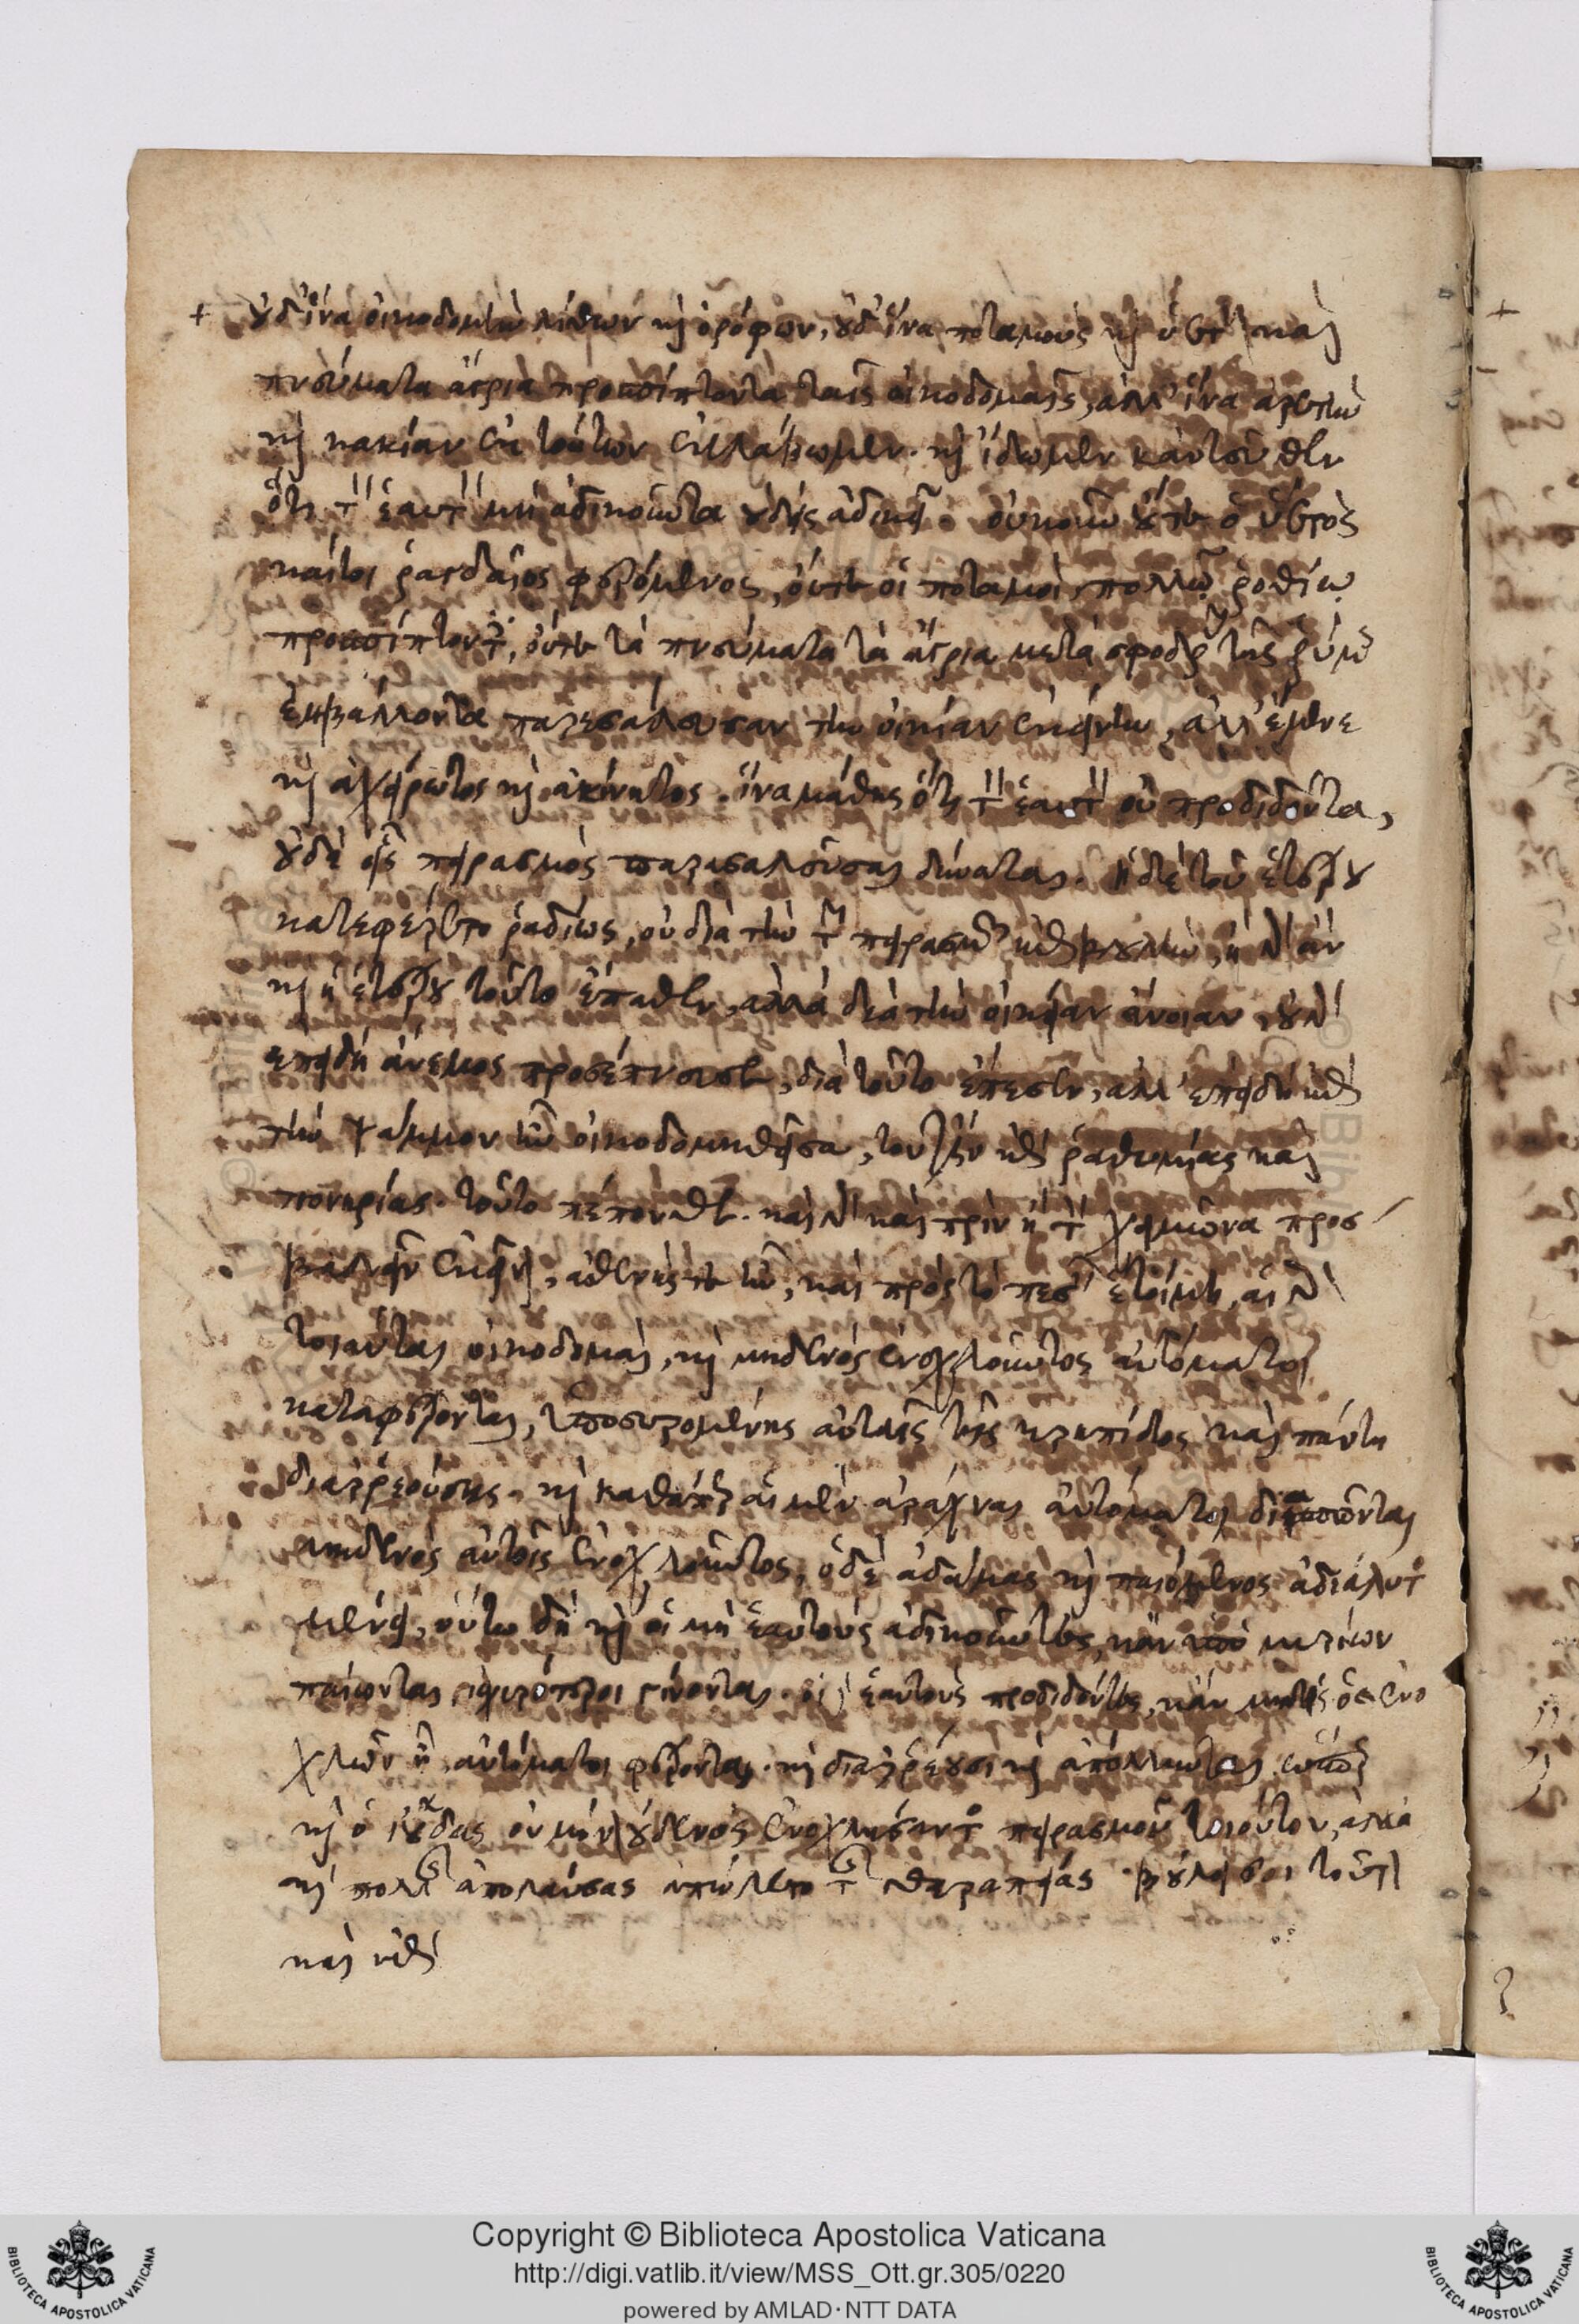 + οὐδ' ἵνα οἰκοδομὴν λίθων καὶ ὀρόφων, οὐδ' ἵνα ποταμοὺς καὶ ὑετὸν καὶ
πνεύματα ἄγρια προσπίπτοντα ταῖς οἰκοδομαῖς, ἀλλ' ἵνα ἀρετὴν
καὶ κακίαν ἐκ τούτων ἐκλάβωμεν. καὶ ἴδωμεν κἀντεῦθεν
ὅτι τὸν ἑαυτὸν μὴ ἀδικοῦντα οὐδεὶς ἀδικεῖ. οὐκοῦν οὔτε ὁ ὑετὸς
καίτοι ῥαγδαῖος φερόμενος, οὔτε οἱ ποταμοὶ πολλῷ ῥοθίῳ
προσπίπτοντες, οὔτε τὰ πνεύματα τὰ ἄγρια μετὰ σφοδρᾶς τῆς ῥύμης
ἐμβάλλοντα παρεσάλευσαν τὴν οἰκίαν ἐκείνην, ἀλλ' ἔμεινε
καὶ ἀχείρωτος καὶ ἀκίνητος. ἵνα μάθῃς ὅτι τὸν ἑαυτὸν οὐ προδιδόντα,
οὐδὲ εἷς πειρασμὸς παρασαλεῦσαι δύναται. ἡ δὲ τοῦ ἑτέρου
κατεφέρετο ῥαδίως, οὐ διὰ τὴν τῶν πειρασμῶν ἐπιβουλὴν, ἦ γὰρ ἂν
καὶ ἡ ἑτέρου τοῦτο ἔπαθεν, ἀλλὰ διὰ τὴν οἰκείαν ἄνοιαν, οὐ γὰρ
ἐπειδὴ ἄνεμος προσέπνευσε, διὰ τοῦτο ἔπεσεν, ἀλλ' ἐπειδὴ ἐπὶ
τὴν ψάμμον ἦν οἰκοδομηθεῖσα, τουτέστιν ἐπὶ ῥαθυμίας καὶ
πονηρίας. τοῦτο πέπονθε. καὶ γὰρ καὶ πρὶν ἢ τὸν χειμῶνα προσ
βαλεῖν ἐκεῖνον, ἀσθενής τε ἦν, καὶ πρὸς τὸ πεσεῖν ἑτοίμη, αἱ γὰρ
τοιαῦται οἰκοδομαὶ, καὶ μηδενὸς ἐνοχλοῦντος αὐτόματοι
καταφέρονται, ὑποσυρομένης αὐταῖς τῆς κρηπίδος καὶ πάντῃ
διαρρεούσης. καὶ καθάπερ αἱ μὲν ἀράχναι αὐτόματοι διασπῶνται
μηδενὸς αὐταῖς ἐνοχλοῦντος, ὁ δὲ ἀδάμας καὶ παιόμενος ἀδιάλυτος
μένει, οὕτω δὴ καὶ οἱ μὴ ἑαυτοὺς ἀδικοῦντες, κἂν ὑπὸ μυρίων
παίωνται ἰσχυρότεροι γίνονται. οἱ δὲ ἑαυτοὺς προδιδόντες, κἂν μηδεὶς ὁ ἐνο
χλῶν ᾖ, αὐτόματοι φέρονται. καὶ διαρρέουσι καὶ ἀπόλλυνται, ὥσπερ
καὶ ὁ Ἰούδας οὐ μόνον οὐδενὸς ἐνοχλήσαντος πειρασμοῦ τοιούτου, ἀλλὰ
καὶ πολλῆς ἀπολαύσας ἀπώλετο τῆς θεραπείας. βούλει σοι τοῦτο
καὶ ἐπὶ